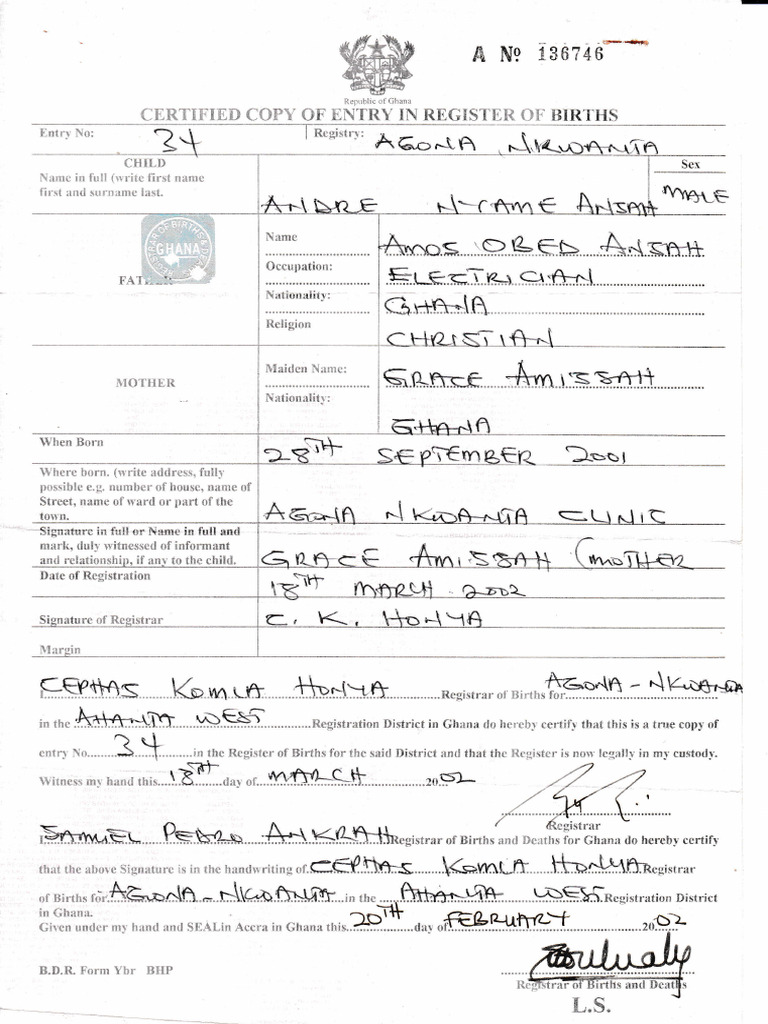 A Nº 136746
Republic of Ghana
CERTIFIED COPY OF ENTRY IN REGISTER OF BIRTHS
Entry No: 34 Registry: AGONA NKWANTA
CHILD
Name in full (write first name
first and surname last.
ANDRE NYAME ANSAH
Sex
MALE
REGISTRAR OF BIRTHS
GHANA
FATHER
Name AMOS OBED ANSAH
Occupation: ELECTRICIAN
Nationality: GHANA
Religion CHRISTIAN
MOTHER
Maiden Name: GRACE AMISSAH
Nationality: GHANA
When Born 28TH SEPTEMBER 2001
Where born. (write address, fully
possible e.g. number of house, name of
Street, name of ward or part of the
town. AGONA NKWANTA CLINIC
Signature in full or Name in full and
mark, duly witnessed of informant
and relationship, if any to the child. GRACE AMISSAH (MOTHER
Date of Registration 18TH MARCH 2002
Signature of Registrar C. K. HONYA
Margin
I CEPHAS KOMLA HONYA Registrar of Births for AGONA - NKWANTA
in the AHANTA WEST Registration District in Ghana do hereby certify that this is a true copy of
entry No. 34 in the Register of Births for the said District and that the Register is now legally in my custody.
Witness my hand this 18TH day of MARCH 2002
Registrar
I SAMUEL PEDRO ANKRAH Registrar of Births and Deaths for Ghana do hereby certify
that the above Signature is in the handwriting of CEPHAS KOMLA HONYA Registrar
of Births for AGONA - NKWANTA in the AHANTA WEST Registration District
in Ghana.
Given under my hand and SEALin Accra in Ghana this 20TH day of FEBRUARY 2002
B.D.R. Form Ybr BHP
Registrar of Births and Deaths
L.S.